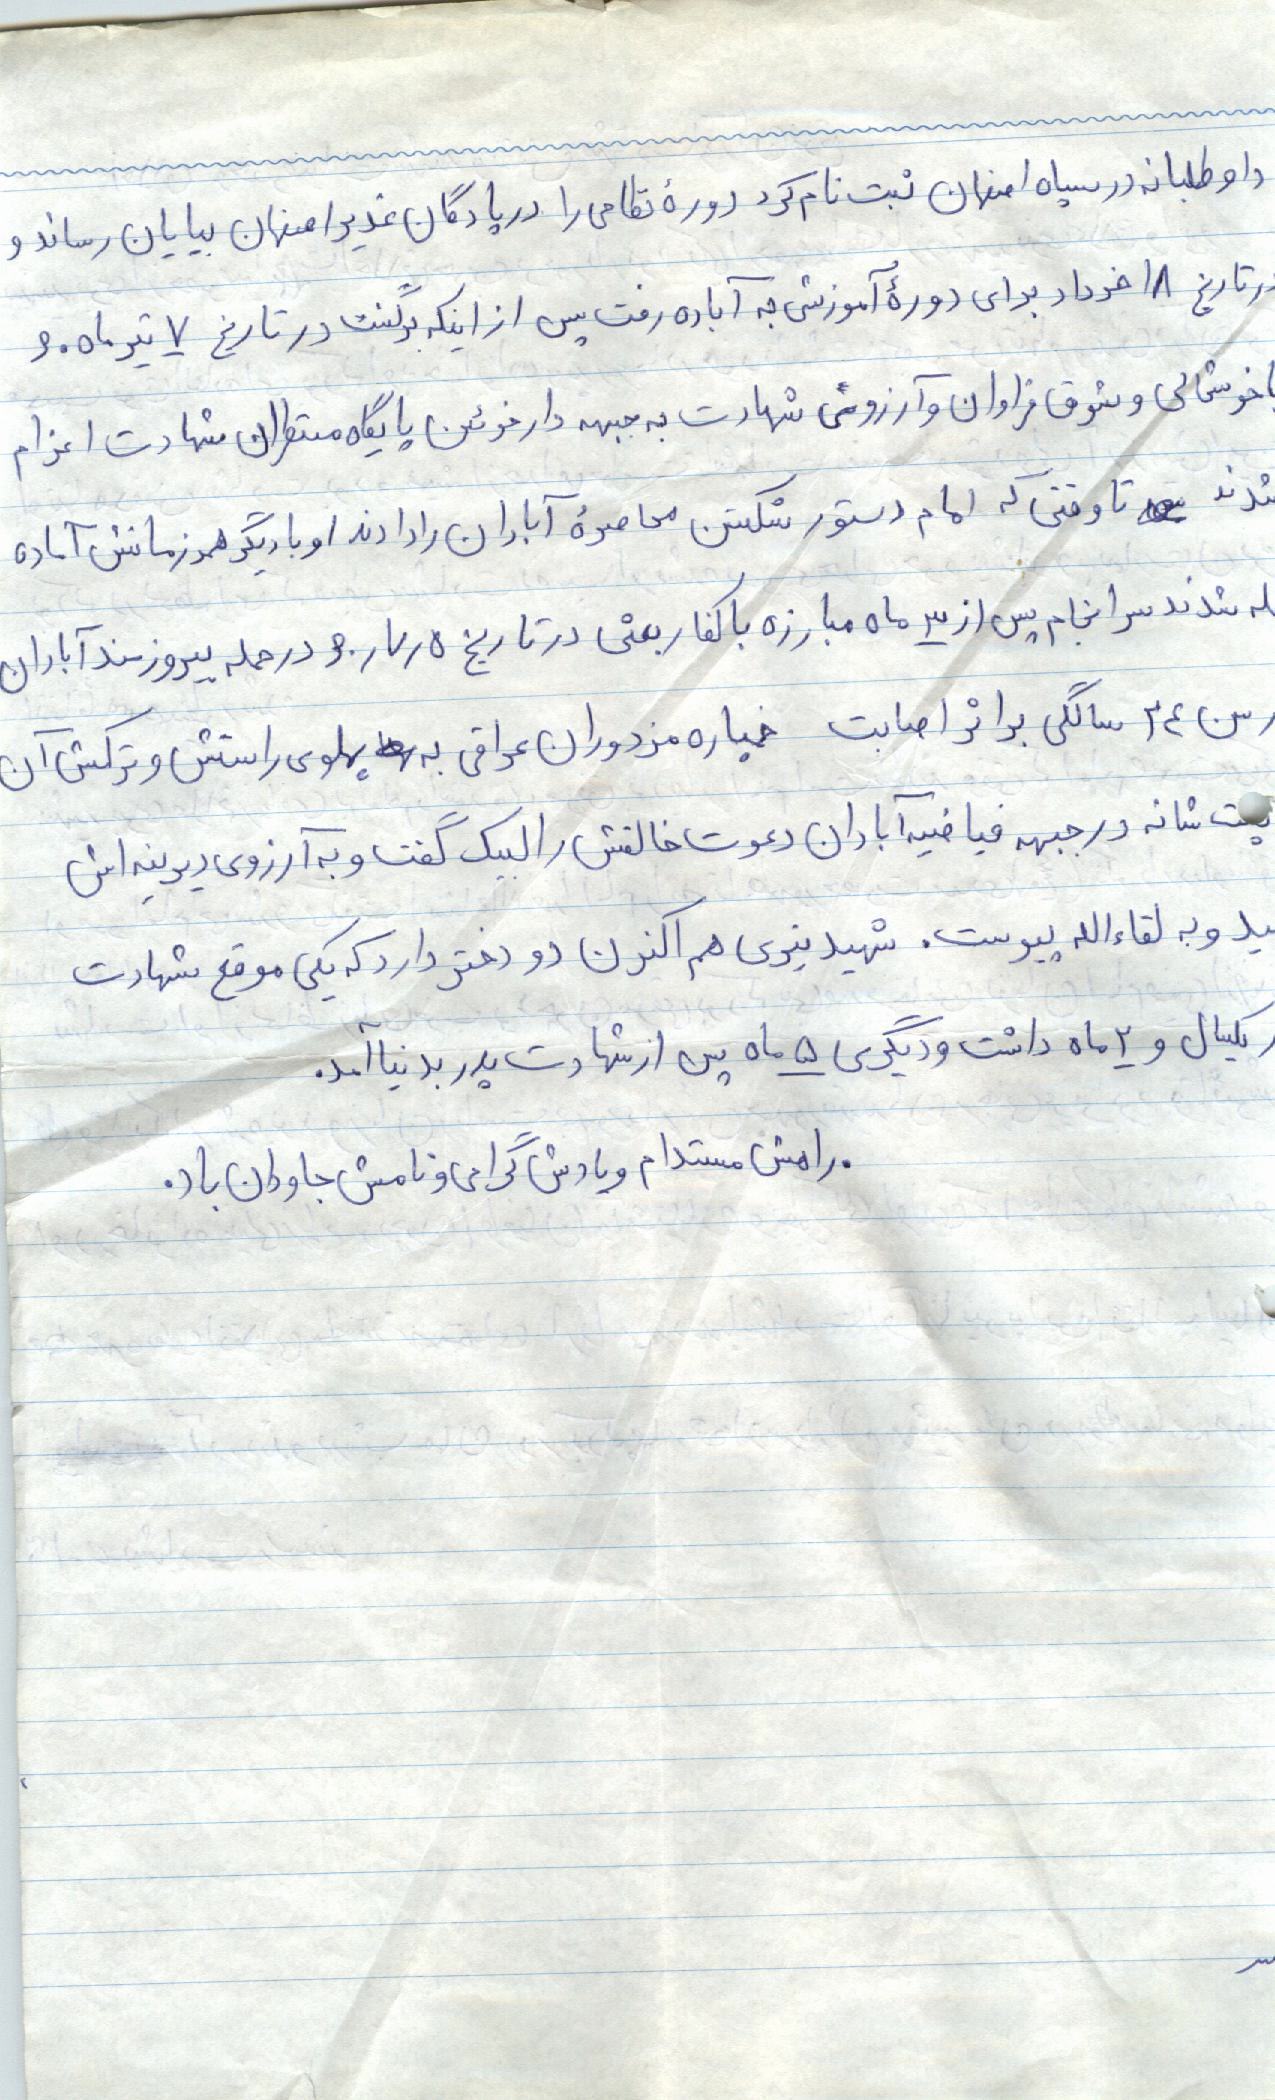 داوطلبانه در سپاه اصفهان ثبت نام کرد دورهٔ نظامی را در پادگان غدیر اصفهان بپایان رساند و
در تاریخ ۱۸ خرداد برای دورهٔ آموزشی به آباده رفت پس از اینکه برگشت در تاریخ ۷ تیر ماه ۶۰
با خوشحالی و شوق فراوان و آرزوی شهادت به جبهه دارخوئن پایگاه منتظران شهادت اعزام
شدند تا وقتی که امام دستور شکستن محاصرهٔ آبادان را دادند او با دیگر همرزمانش آماده
حمله شدند سرانجام پس از ۳ ماه مبارزه با کفار بعثی در تاریخ ۵ر۷ر۶۰ در حمله پیروزمند آبادان
در سن ۲۴ سالگی بر اثر اصابت خمپاره مزدوران عراقی به پهلوی راستش و ترکش آن
پشت شانه در جبهه فیاضیه آبادان دعوت خالقش را لبیک گفت و به آرزوی دیرینه اش
رسید و به لقاءالله پیوست. شهید هم اکنون دو دختر دارد که یکی موقع شهادت
پدر یکسال و ۲ ماه داشت و دیگری ۵ ماه پس از شهادت پدر بدنیا آمد.
راهش مستدام و یادش گرامی و نامش جاودان باد.